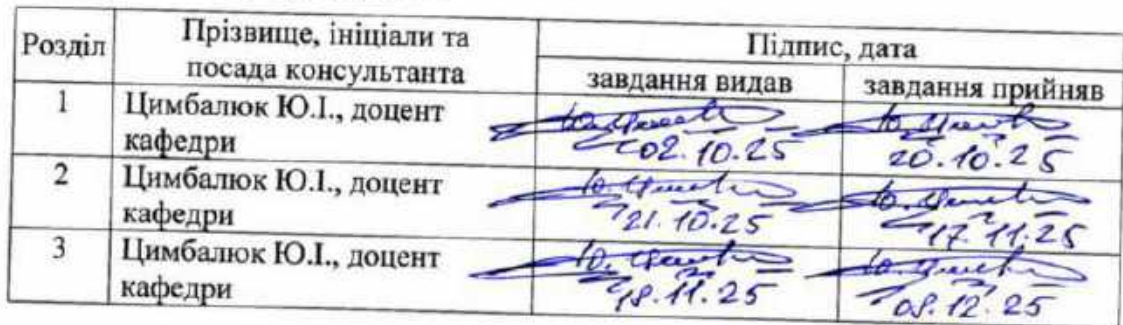 Розділ
Прізвище, ініціали та
посада консультанта
Підпис, дата
завдання видав
завдання прийняв
1
Цимбалюк Ю.І., доцент
кафедри
02.10.25
20.10.25
2
Цимбалюк Ю.І., доцент
кафедри
21.10.25
17.11.25
3
Цимбалюк Ю.І., доцент
кафедри
18.11.25
08.12.25